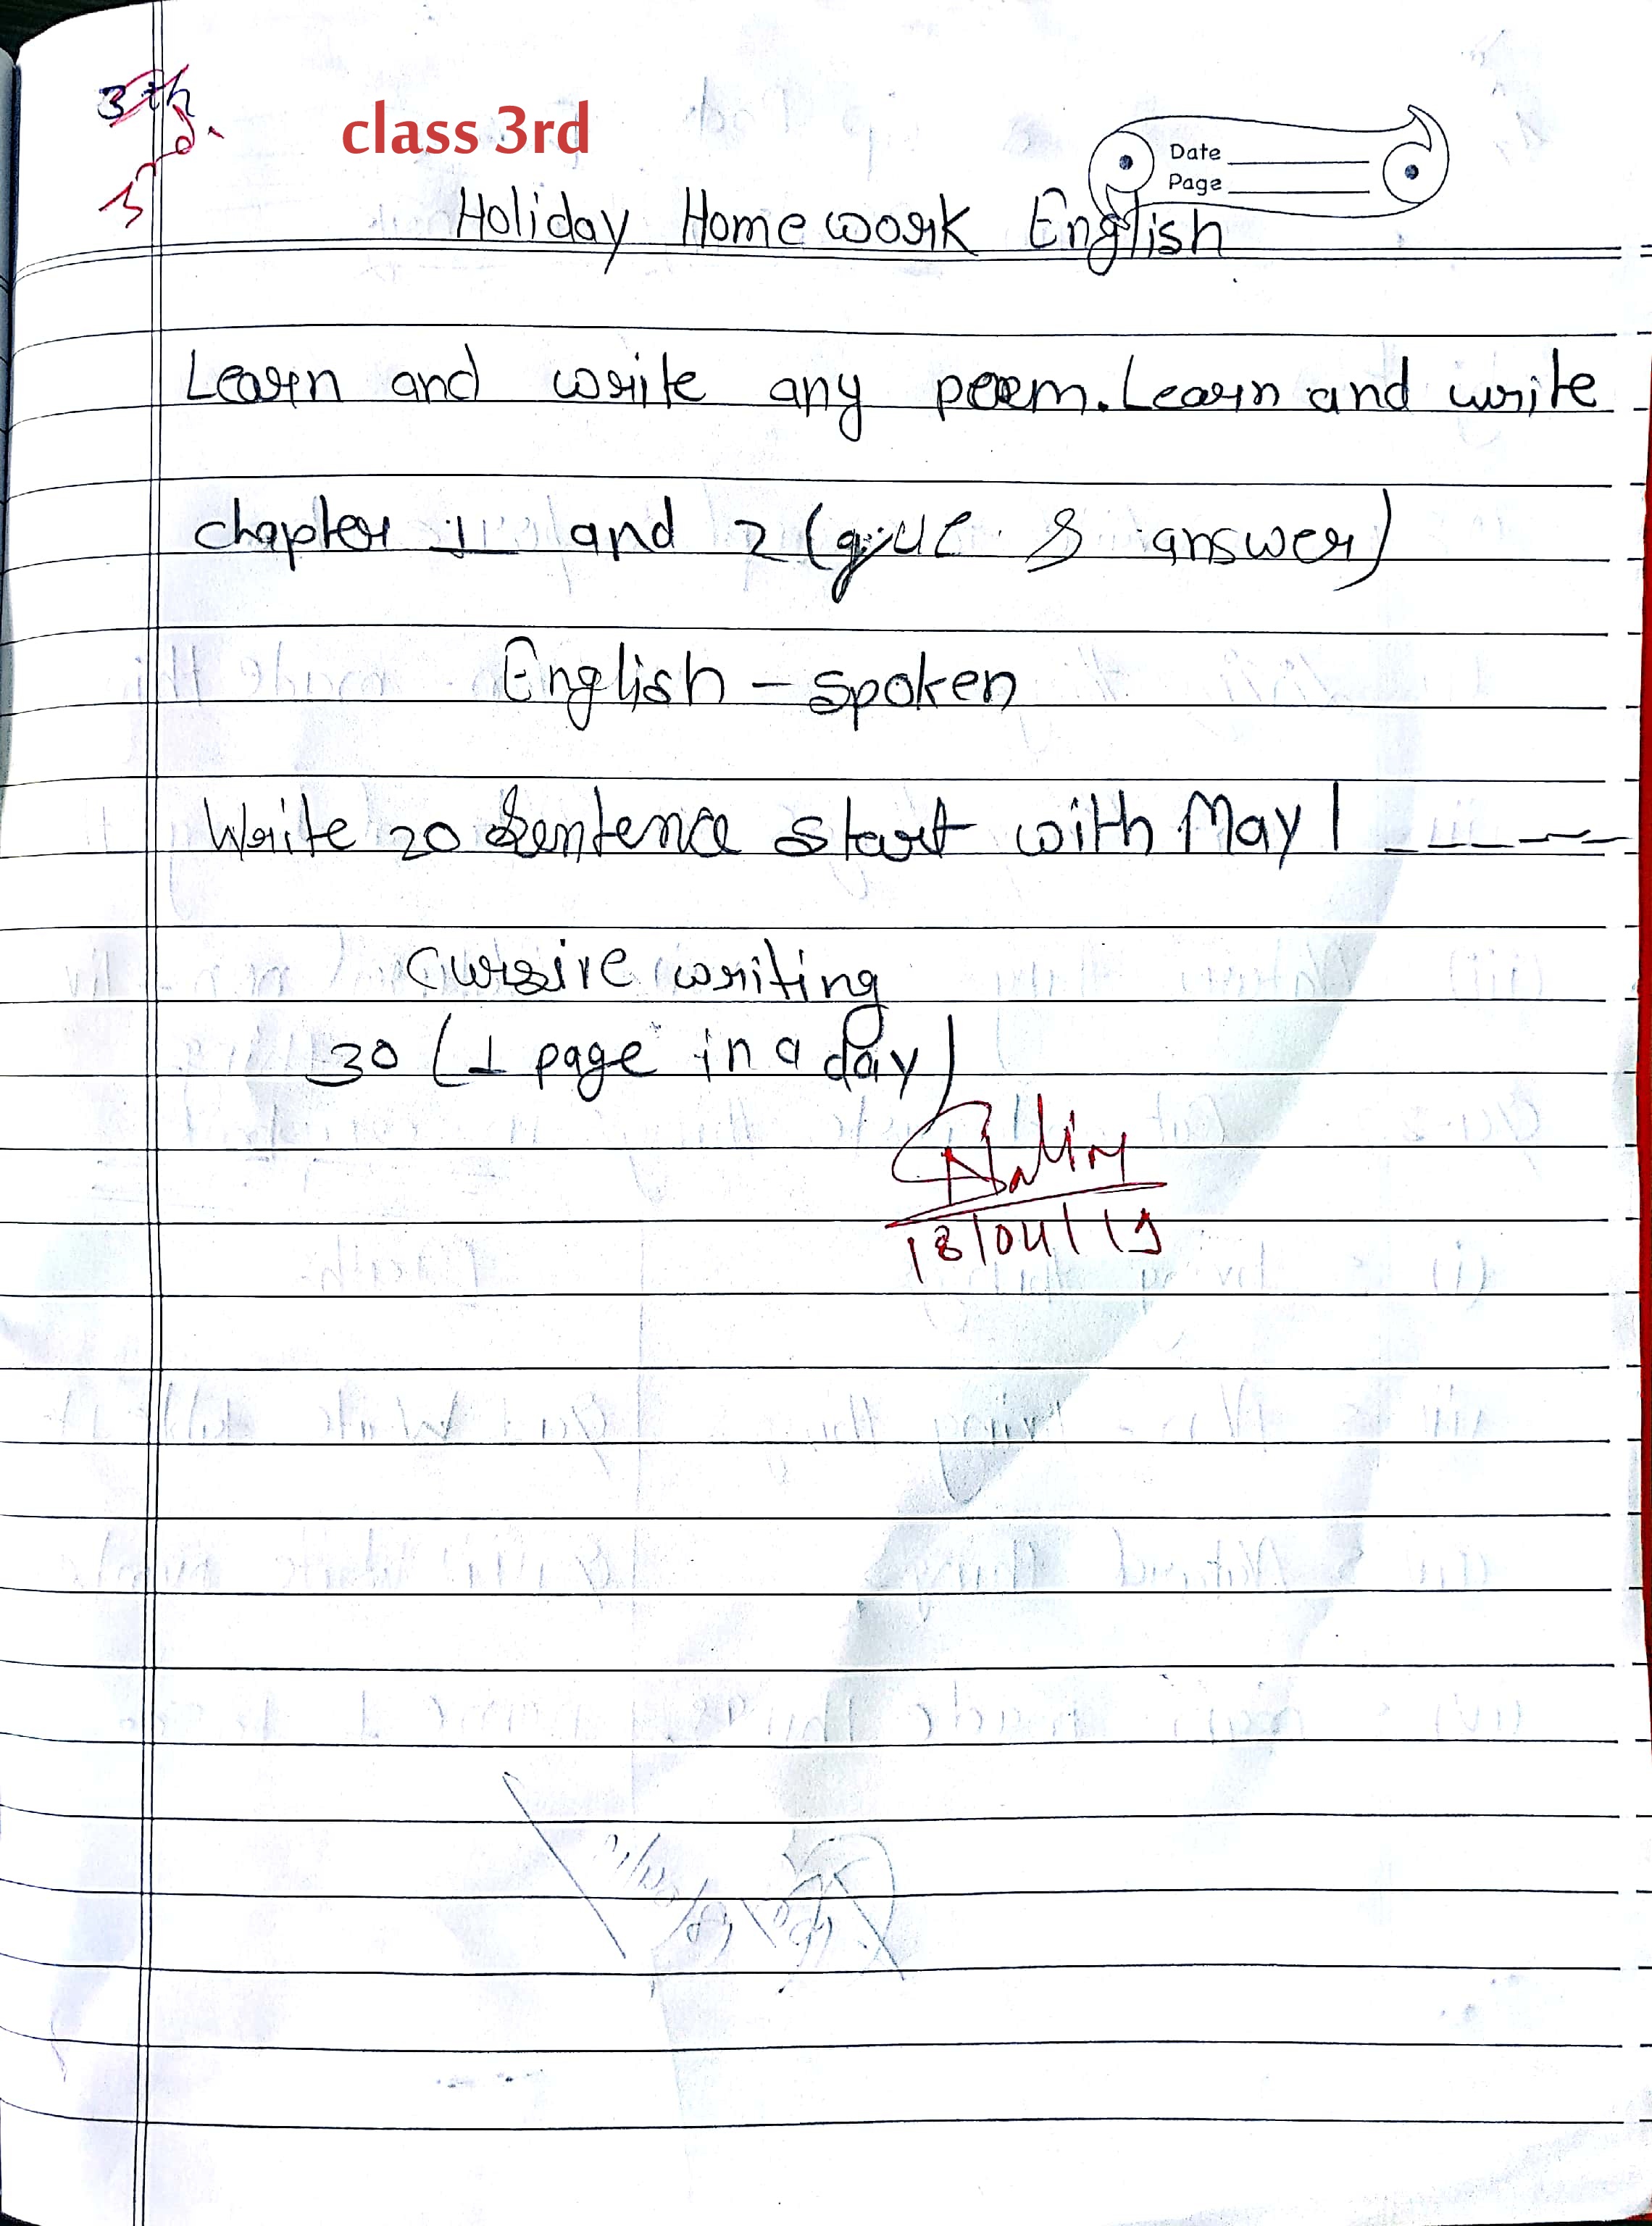 3th
3rd.
class 3rd
Date
Page
Holiday Homework English
Learn and write any poem. Learn and write
chapter 1 and 2 ( & answer)
English - spoken
Write 20 Sentence start with May I _ _ _ _ _
Cursive writing
30 (1 page in a day)
18/04/19